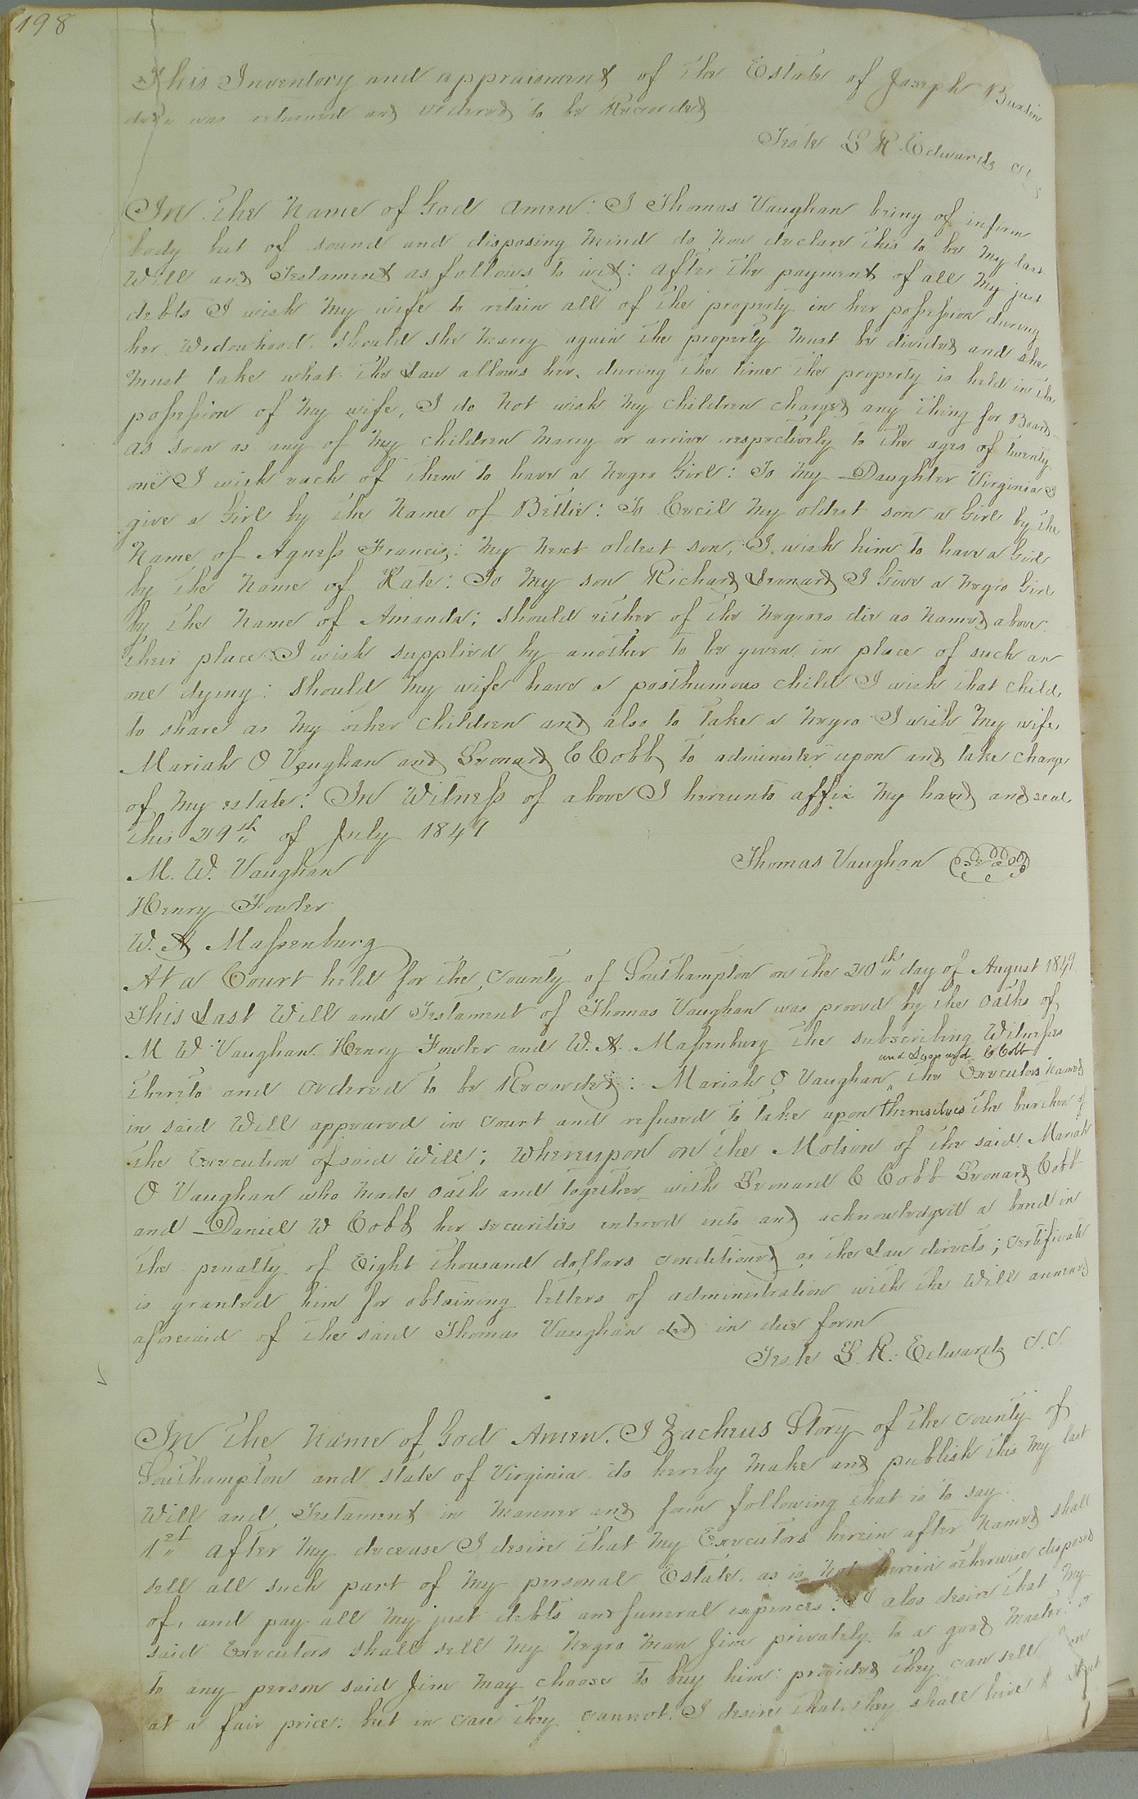 198
This Inventory and appraisment of the Estate of Joseph
dec'd was returned and ordered to be Recorded
Teste L R. Edwards
In the Name of God Amen: I Thomas Vaughan being of infirm
body but of sound and disposing mind do now declare this to be my last
Will and Testament as follows to wit: after the payment of all my just
debts I wish my wife to retain all of the property in her possession during
her Widowhood. Should she marry again the property must be divided and she
must take what the Law allows her. during the time the property is held in the
possession of my wife, I do not wish my children charged any thing for Board
as soon as any of my children marry or arrive respectively to the ages of twenty
one I wish each of them to have a negro Girl: To my Daughter Virginia I
give a Girl by the name of Bettie: To Cecil my oldest son a Girl by the
Name of Agness Francis: my next oldest son, I wish him to have a Girl
by the Name of Kate: To my son Richard Leonard I Give a negro Girl
by the Name of Amanda; should either of the negroes die as named above
their place I wish supplied by another to be given in place of such an
one dying: should my wife have a posthumous child I wish that child
to share as my other children and also to take a negro I wish my wife
Mariah O Vaughan and Leonard E Cobb to administer upon and take charge
of my estate: In Witness of above I hereunto affix my hand and seal
this 29th of July 1849
M. W. Vaughan Thomas Vaughan
Henry Fowler
W. A Massenburg
At a Court held for the County of Southampton on the 20th day of August 1849
This Last Will and Testament of Thomas Vaughan was proved by the oaths of
M W Vaughan Henry Fowler and W. A. Massenburg the subscribing Witnesses
and Leonard E Cobb
thereto and ordered to be Recorded: Mariah O Vaughan the Executors named
in said Will appeared in court and refused to take upon themselves the burthen of
the Execution of said Will; Whereupon on the Motion of the said Mariah
O Vaughan who made oath and together with Leonard E Cobb Leonard Cobb
and Daniel W Cobb her securities entered into and acknowledged a bond in
the penalty of Eight thousand dollars conditioned as the Law directs; certificate
is granted him for obtaining letters of administration with the Will annexed
aforesaid of the said Thomas Vaughan dec'd in due form
Teste L. R. Edwards C.C.
In the Name of God Amen. I Zacheus Story of the county of
Southampton and state of Virginia do hereby make and publish this my last
Will and Testament in manner and form following that is to say.
1st After my decease I desire that my Executors herein after named shall
sell all such part of my personal Estate as is not herein otherwise disposed
of, and pay all my just debts and funeral expences: I also desire that my
said Executors shall sell my negro man Jim privately to a good master or
to any person said Jim may choose to buy him: provided they can sell him
at a fair price: but in case they cannot I desire that they shall hire &